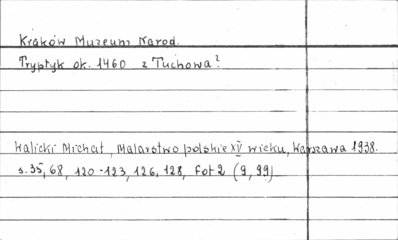 Kraków Muzeum Narod.
Tryptyk ok. 1460 z Tuchowa?
Walicki Michał, Malarstwo polskie XV wieku, Warszawa 1938.
s. 35, 68, 120-123, 126, 128, fot 2 (9, 99)